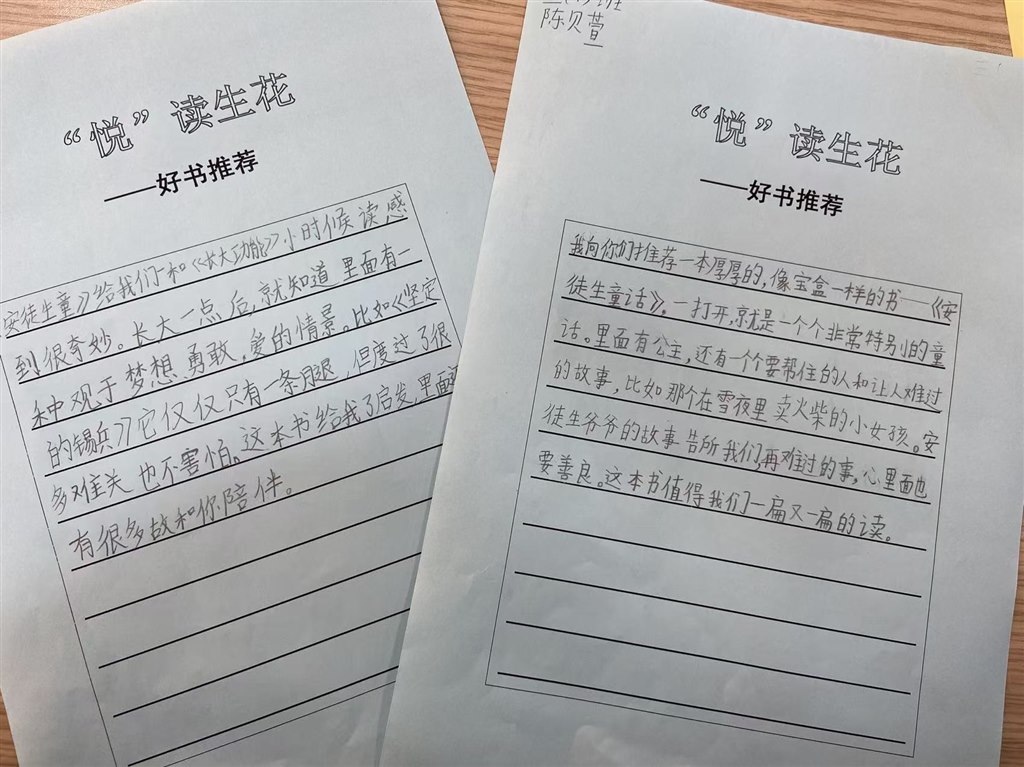 “悦”读生花
——好书推荐
安徒生童》给我们一和《长大功能》小时候读感
到很奇妙。长大一点后,就知道里面有一
种观于梦想、勇敢、爱的情景。比如《坚定
的锡兵》它仅仅只有一条月腿,但度过了很
多难关也不害怕。这本书给我了启发,里面
有很多故和你陪伴。
班
陈贝萱
“悦”读生花
——好书推荐
我向你们推荐一本厚厚的,像宝盒一样的书——《安
徒生童话》。一打开,就是一个个非常特别的童
话。里面有公主,还有一个要帮住的人和让人难过
的故事,比如那个在雪夜里卖火柴的小女孩。安
徒生爷爷的故事告所我们再难过的事。心里面也
要善良。这本书值得我们一扁又一扁的读。